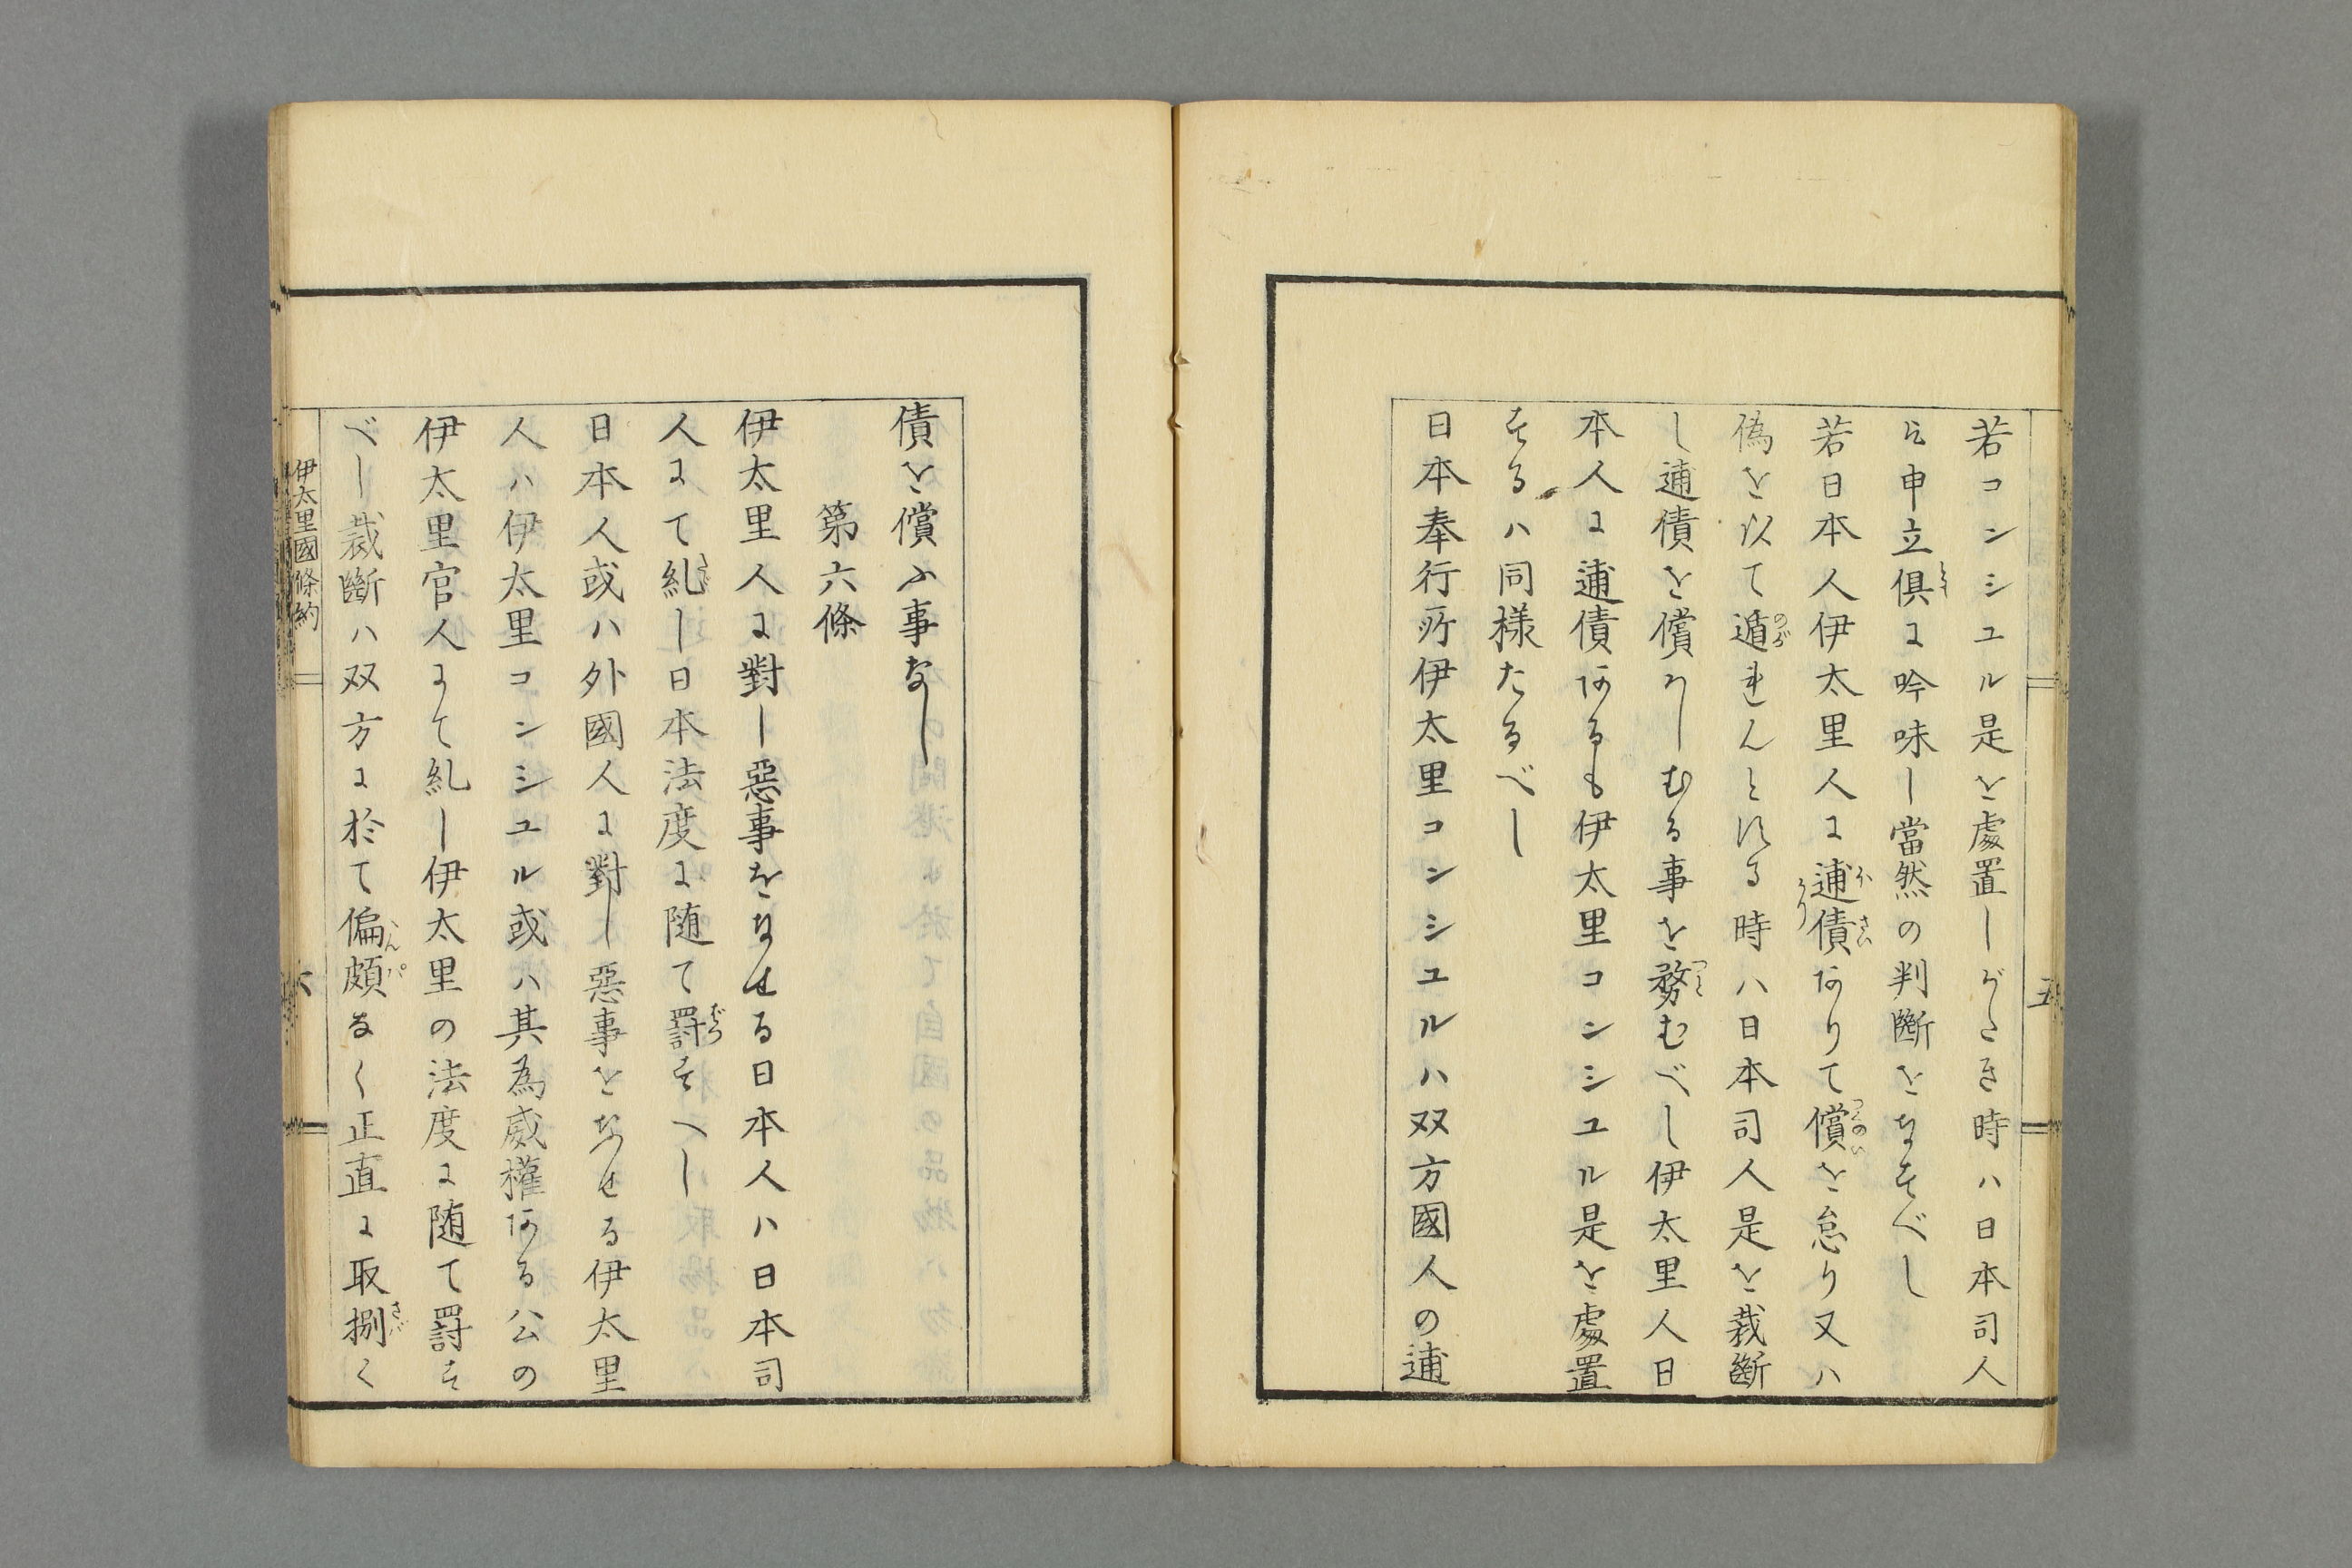 若コンシユル是を處置しがたき時ハ日本司人
に申立俱に吟味し當然の判斷をなすべし
若日本人伊太里人に逋債ありて償を怠り又ハ
偽を以て遁れんとする時ハ日本司人是を裁斷
し逋債を償ハしむる事を務むべし伊太里人日
本人に逋債あるも伊太里コンシユル是を處置
するハ同様たるべし
日本奉行所伊太里コンシユルハ双方國人の逋
五
債を償ふ事なし
第六條
伊太里人に對し惡事をなせる日本人ハ日本司
人にて糺し日本法度に随て罰すへし
日本人或ハ外國人に對し惡事をなせる伊太里
人ハ伊太里コンシユル或ハ其為威權ある公の
伊太里官人にて糺し伊太里の法度に随て罰す
べし裁斷ハ双方に於て偏頗なく正直に取捌く
伊太里國條約
六